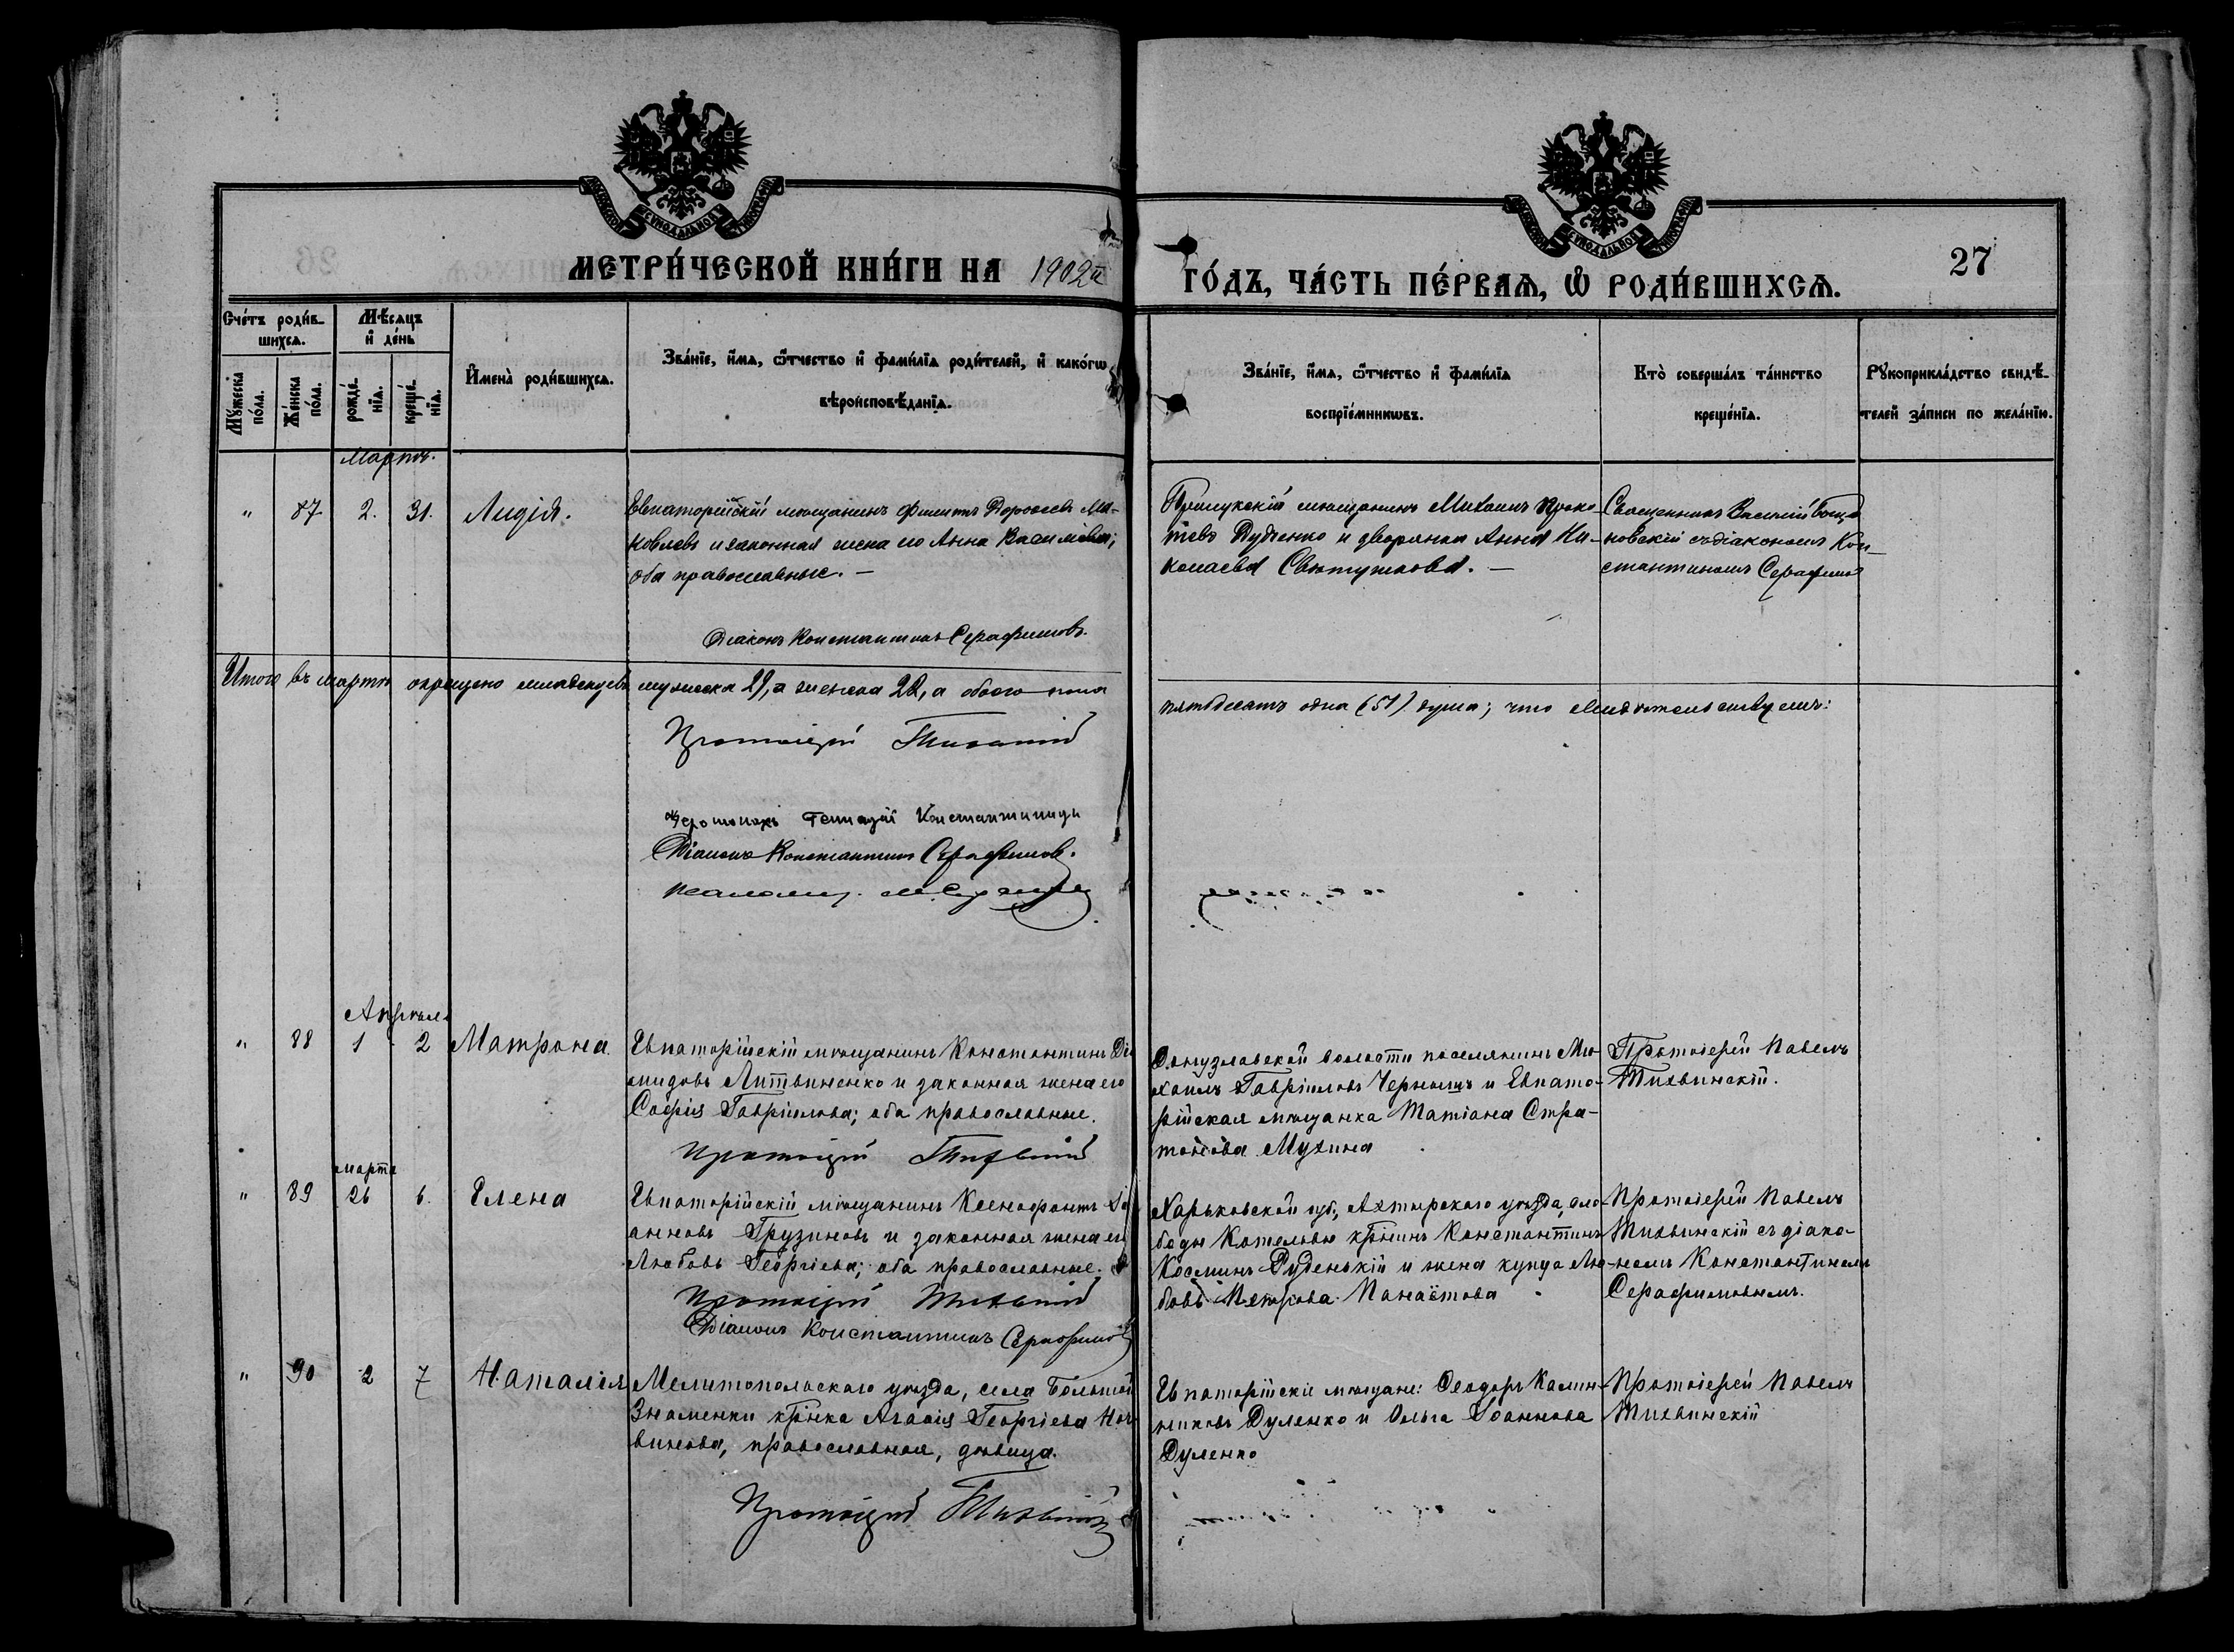 МЕТРИ́ЧЕСКОЙ КНИ́ГИ НА 1902й
ГО́ДЪ, ЧА́СТЬ ПЕ́РВАѦ, Ѡ РОДИ́ВШИХСѦ.
27
Сче́тъ роди́в-
шихсѧ.
Мѣ́сѧцъ
и де́нь
Мꙋ́жеска
по́ла.
Же́нска
по́ла.
рожде́-
нїѧ.
креще́-
нїѧ.
И҆мена̀ роди́вшихсѧ.
Зва́нїе, и҆́мѧ, ѻ҆́тчество и҆ фами́лїѧ роди́телей, и҆ како́гѡ
вѣроисповѣ́данїѧ.
Зва́нїе, и҆́мѧ, ѻ҆́тчество и҆ фами́лїѧ
воспрїе́мникѡвъ.
Кто̀ соверша́лъ та́инство
креще́нїѧ.
Рꙋкоприкла́дство свидѣ́-
телей за́писи по жела́нїю.
Мартъ.
" 87 2. 31. Лидія.
Евпаторійскій мѣщанинъ Дороѳеевъ
Ковлевъ и законная жена его Анна
оба православные. —
Діаконъ Константинъ Серафимовъ.
Прилукскій мѣщанинъ Михаилъ Проко-
Дудченко и дворянка Анна Ни-
колаева Святушкова. —
Священникъ Василій
новскій съ діакономъ Кон-
стантиномъ Серафимо
Итого въ мартѣ окрещено младенцевъ мужеска 29, а женска 22, а обоего пола
пятьдесятъ одна (51) душа; что свидѣтельствуемъ:
Протоіерей Тихвинскій
Іеромонахъ Геннадій Константиниди
Діаконъ Константинъ Серафимовъ.
Апрѣль
" 88 1 2 Матрона.
Евпаторійскій мѣщанинъ Константинъ Діо
мидовъ Литвиненко и законная жена его
Софія Гавріилова; оба православные.
Протоіерей Тихвинскій
Донузлавской волости поселянинъ Ми-
хаилъ Гавріиловъ Чернышъ и Евпато-
рійская мѣщанка Татіана Стра-
тонова Мухина
Протоіерей Павелъ
Тихвинскій.
марта
" 89 26 6. Елена
Евпаторійскій мѣщанинъ Ксенофонтъ Іо
анновъ Грузиновъ и законная жена его
Любовь Георгіева; оба православные.
Протоіерей Тихвинскій
Діаконъ Константинъ Серафимовъ
Харьковской губ., Ахтырскаго уѣзда, сло-
боды Котельвы крнинъ Константинъ
Косминъ Руденькій и жена купца Лю-
бовь Петрова Панаётова
Протоіерей Павелъ
Тихвинскій съ діако-
номъ Константиномъ
Серафимовымъ.
" 90 2 7 Наталія
Мелитопольскаго уѣзда, села Большой
Знаменки крнка Агаѳія Георгіева
винова, православная, дѣвица.
Протоіерей Тихвинскій
Евпаторійскіе мѣщане: Ѳеодоръ Калин-
никовъ Дуленко и Ольга Іоаннова
Дуленко
Протоіерей Павелъ
Тихвинскій